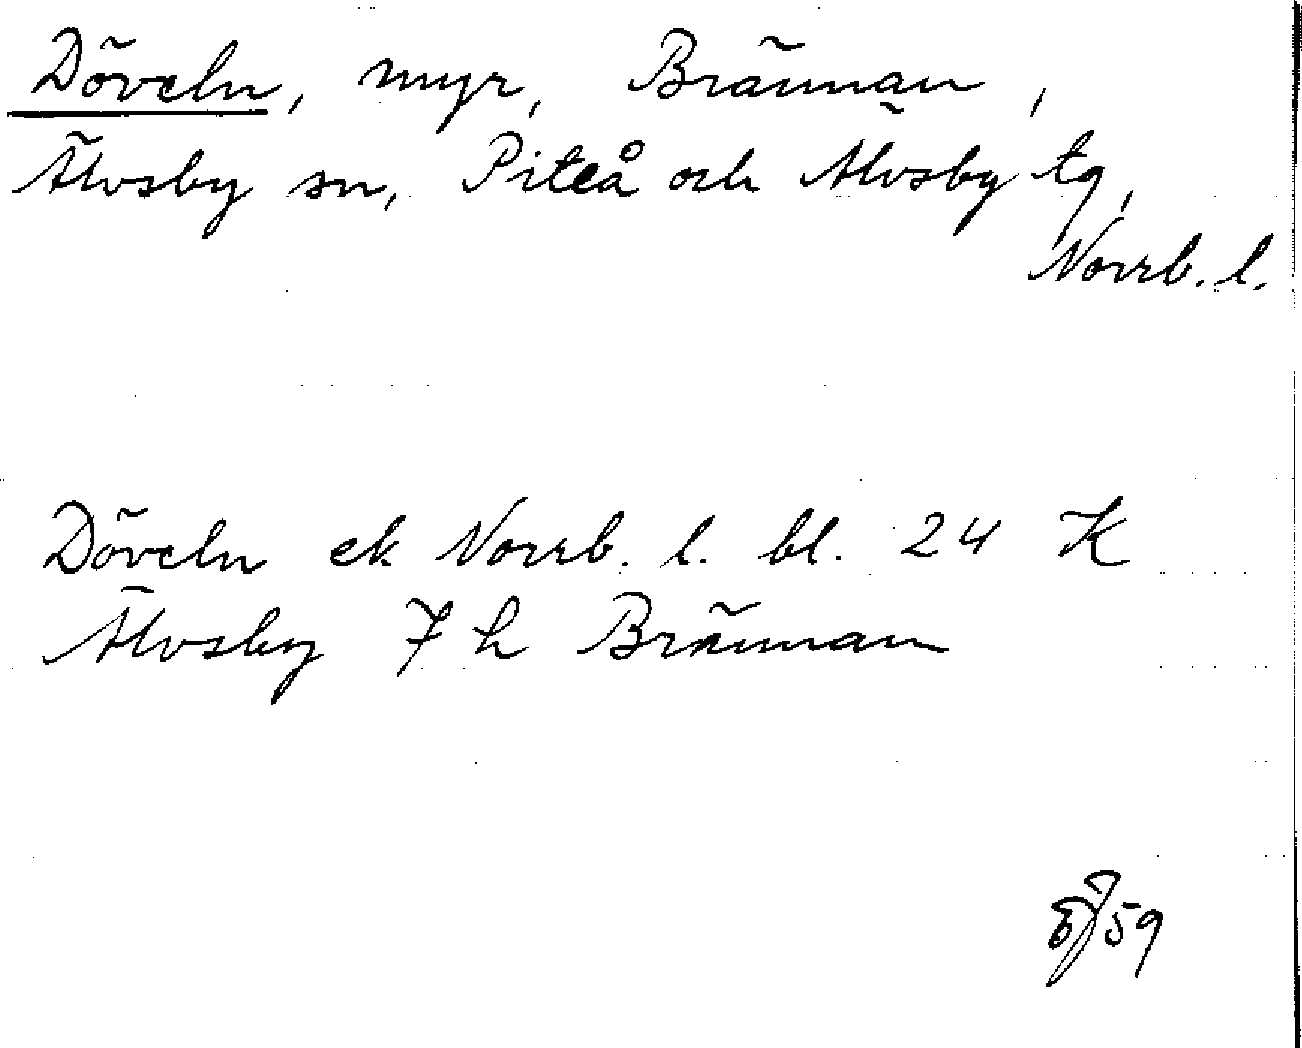 Döveln, myr, Brännan,
Älvsby sn, Piteå och Älvsby tg,
Norrb. l.
Döveln ek Norrb. l. bl. 24 K
Älvsby 7 h Brännan
59